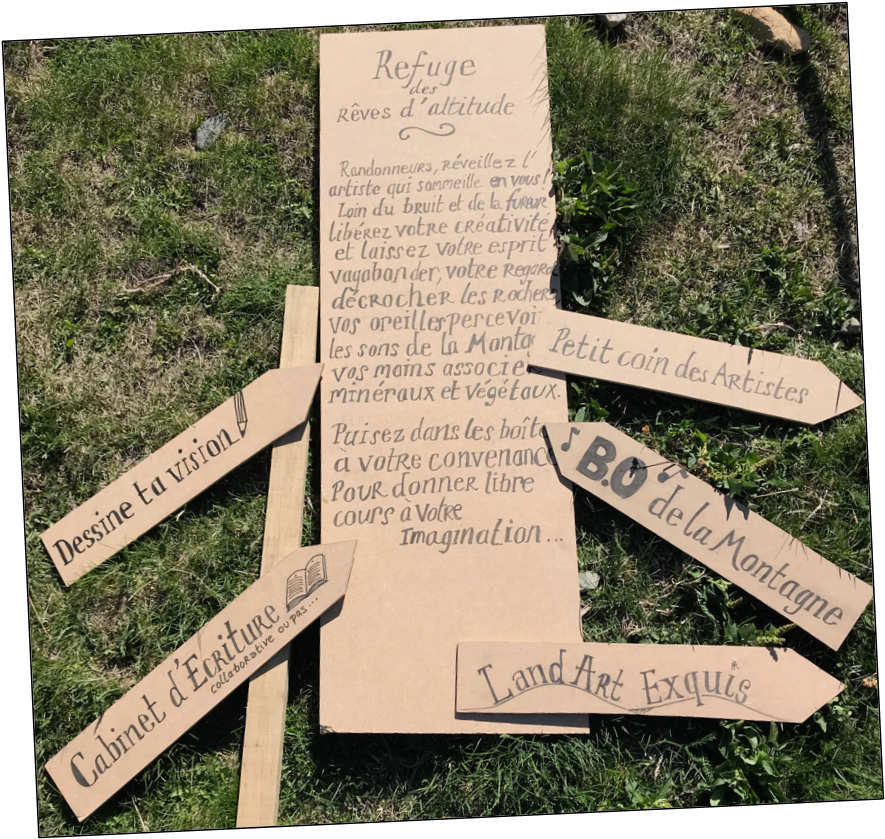 Refuge
des
Rêves d'altitude
Randonneurs, réveillez l'
artiste qui sommeille en vous!
Loin du bruit et de la fureur
libérez votre créativité
et laissez votre esprit
vagabonder, votre Regard
décrocher les Rochers
vos oreilles percevoir
les sons de la Monta
vos mains associe
minéraux et végétaux.
Puisez dans les boîte
à votre convenance
Pour donner libre
cours à votre
Imagination...
Petit coin des Artistes
Dessine ta vision
B.O de la Montagne
Cabinet d'Ecriture
collaborative ou pas...
Land Art Exquis